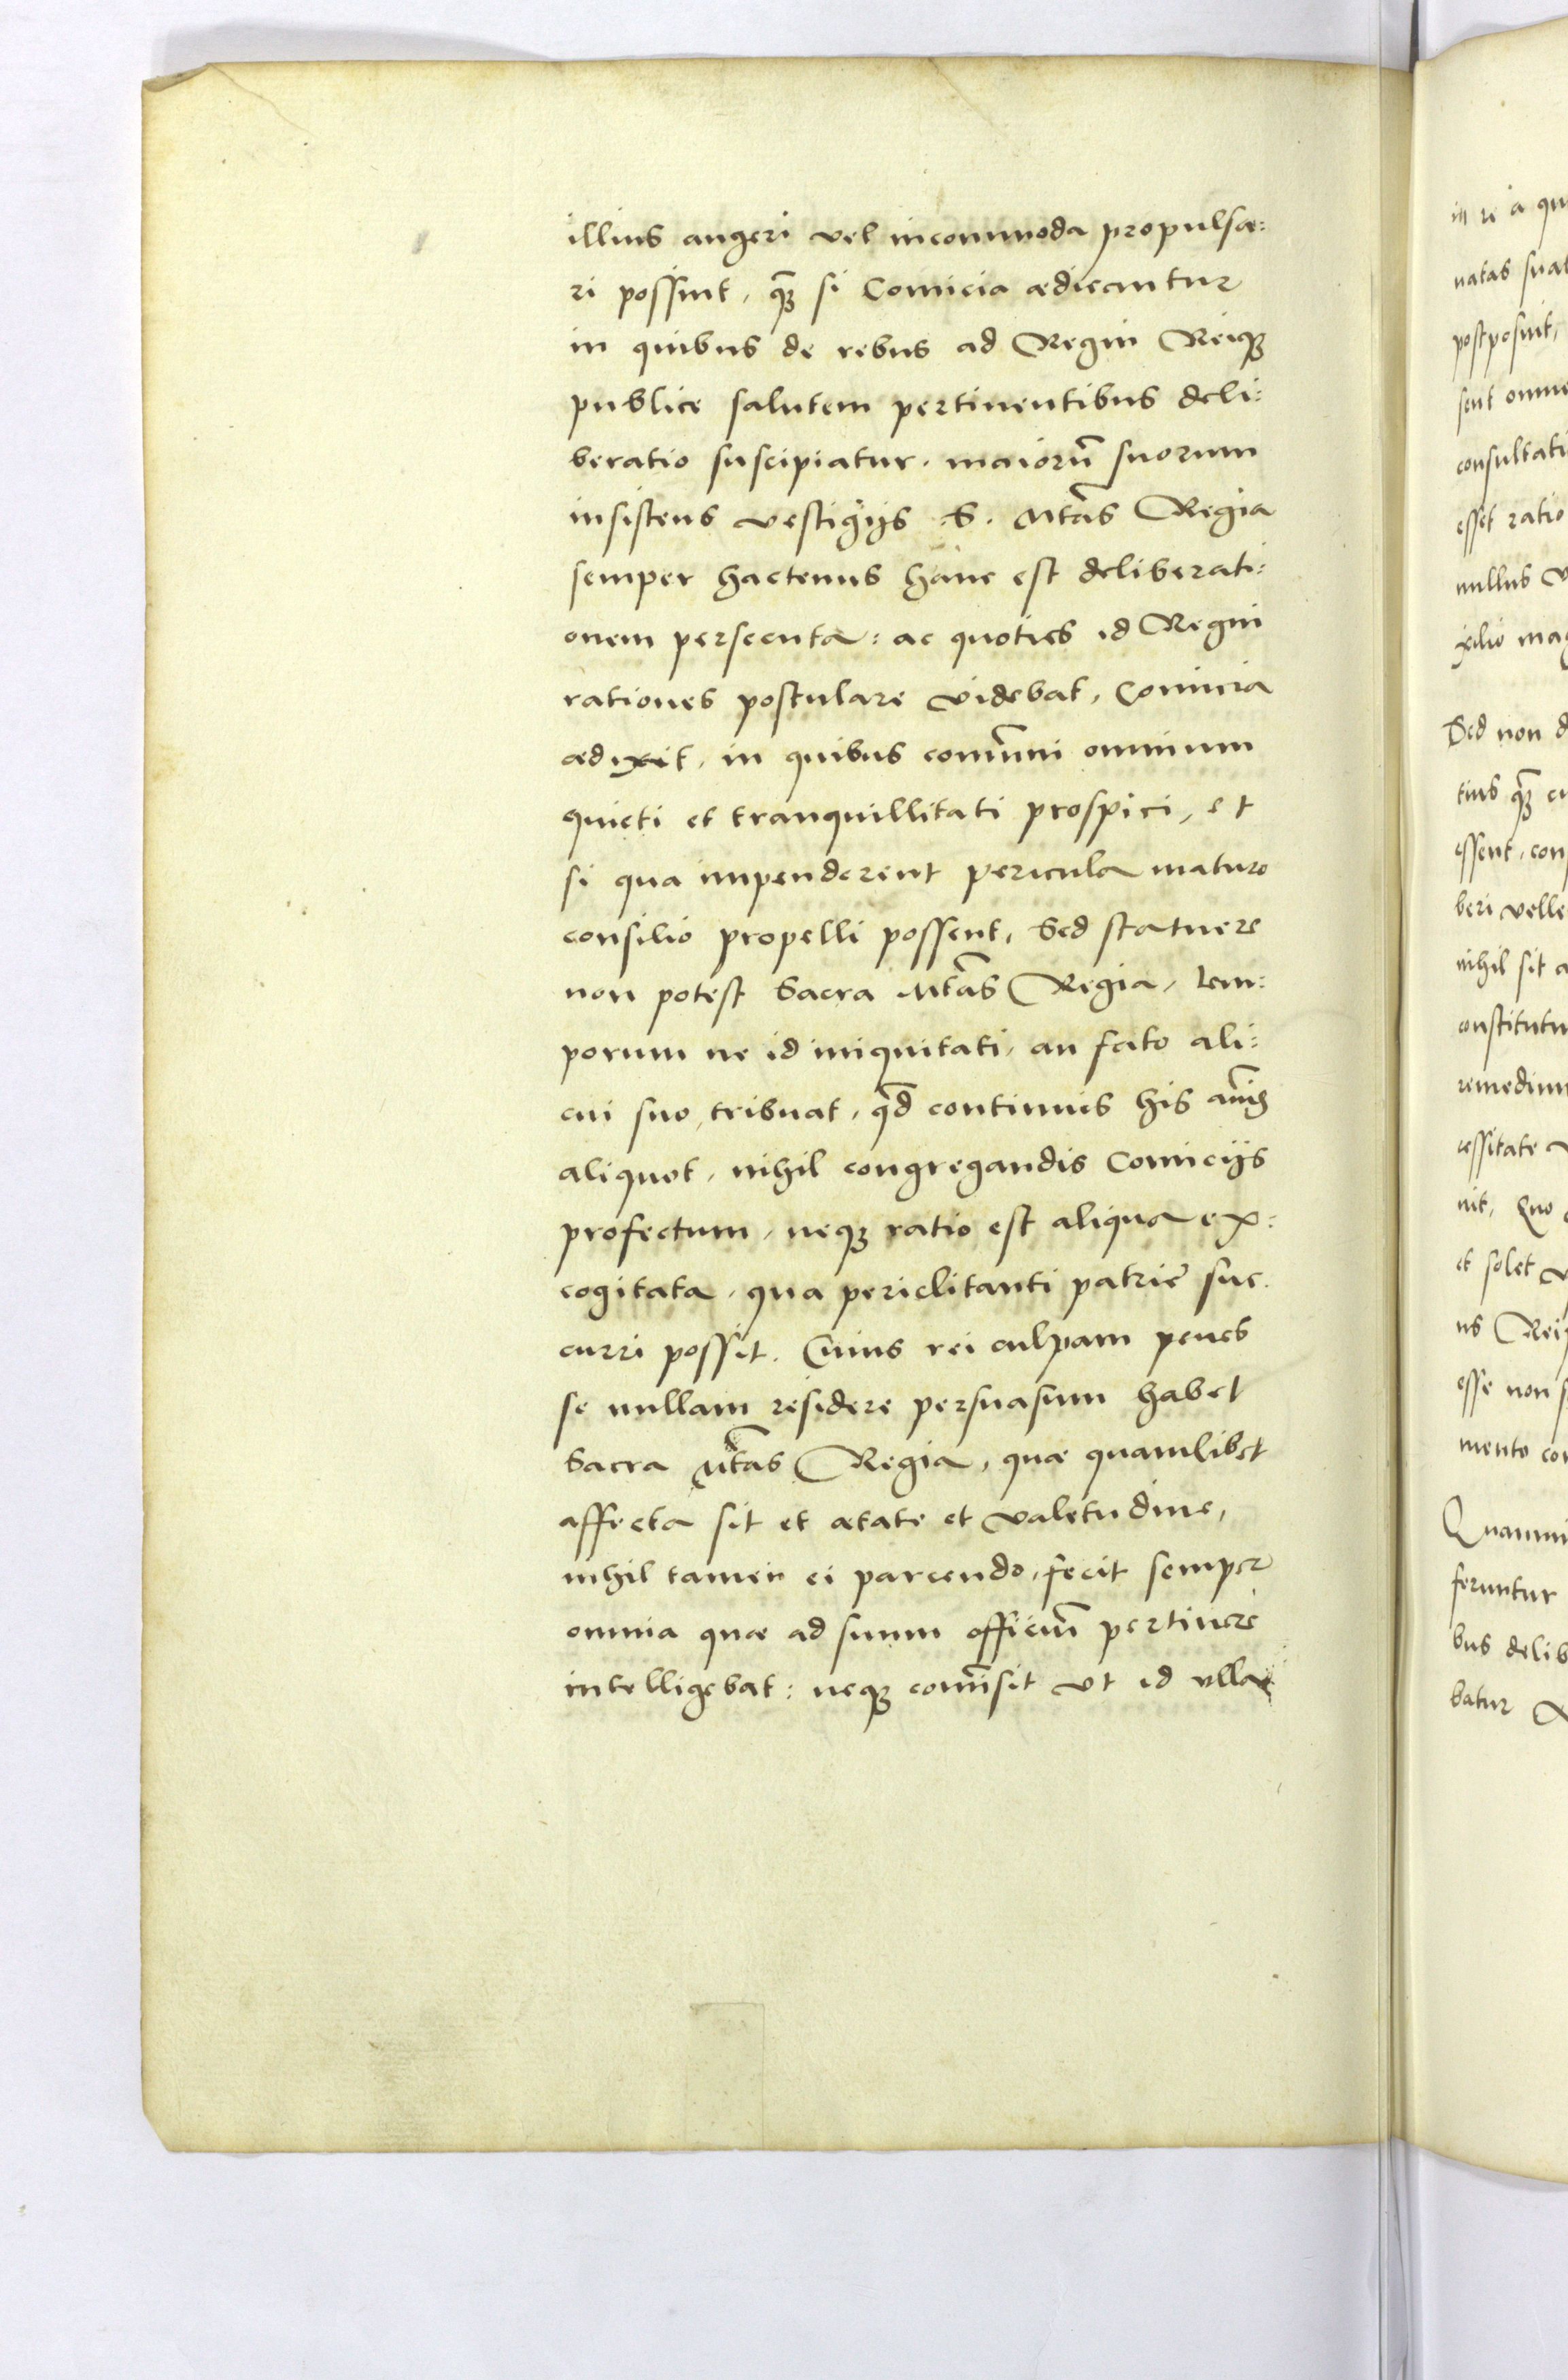 illius augeri vel incommoda propulsa:
ri possint, qꝫ̃ si Comicia ædicantur
in quibus de rebus ad Regni Reiqꝫ
publice salutem pertinentibus deli:
beratio suscipiatur. maiorũ suorum
insistens vestigijs S. Mtãs Regia
semper hactenus hanc est deliberati:
onem persecuta: ac quoties id Regni
rationes postulare videbat, Comicia
ædixit, in quibus com̃uni omnium
quieti et tranquillitati prospici, et
si qua impenderent pericula maturo
consilio propelli possent, Sed statuere
non potest Sacra Mtãs Regia, tem:
porum ne id iniquitati, an fato ali:
cui suo tribuat, qd̃ continuis his añis
aliquot, nihil congregandis Comicijs
profectum, neqꝫ ratio est aliqua ex:
cogitata, qua periclitanti patrie suc.
curri possit. Cuius rei culpam penes
se nullam residere persuasum habet
Sacra Mtãs Regia, quæ quamlibet
affecta sit et ætate et valetudine,
nihil tamen ei parcendo, fecit semper
omnia quæ ad suum officiũ pertinere
intelligebat: neqꝫ com̃isit vt id vlla
in re a qu
uatas sua
postposuit,
sent omne
consultati
esset ratio
nullus v
xilio mag
Sed non d
tius qꝫ̃ cu
essent, con
beri velle
nihil sit a
constitutu
remedium
cessitate
uit, Quo
et solet v
us Rei
esse non s
mento con
Quamui
feruntur
bus delib
batur